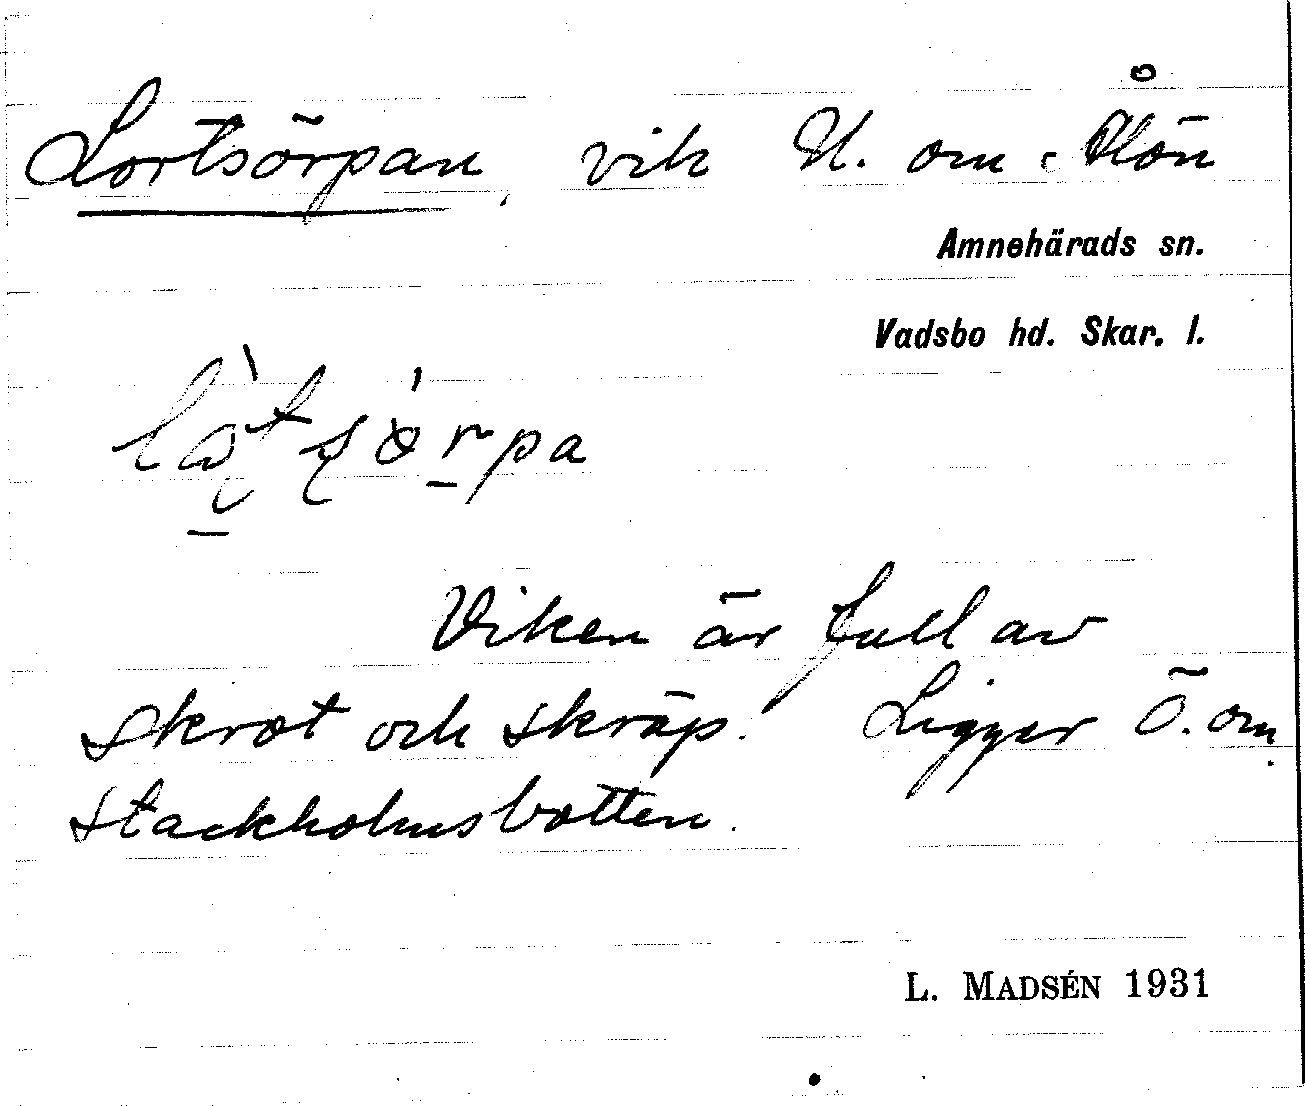 Lortsörpan, vik N. om Åön
Amnehärads sn.
Vadsbo hd. Skar. l.
Viken är full av
skrot och skräp. Ligger Ö. om
stackholmsbotten.
L. MADSÉN 1931